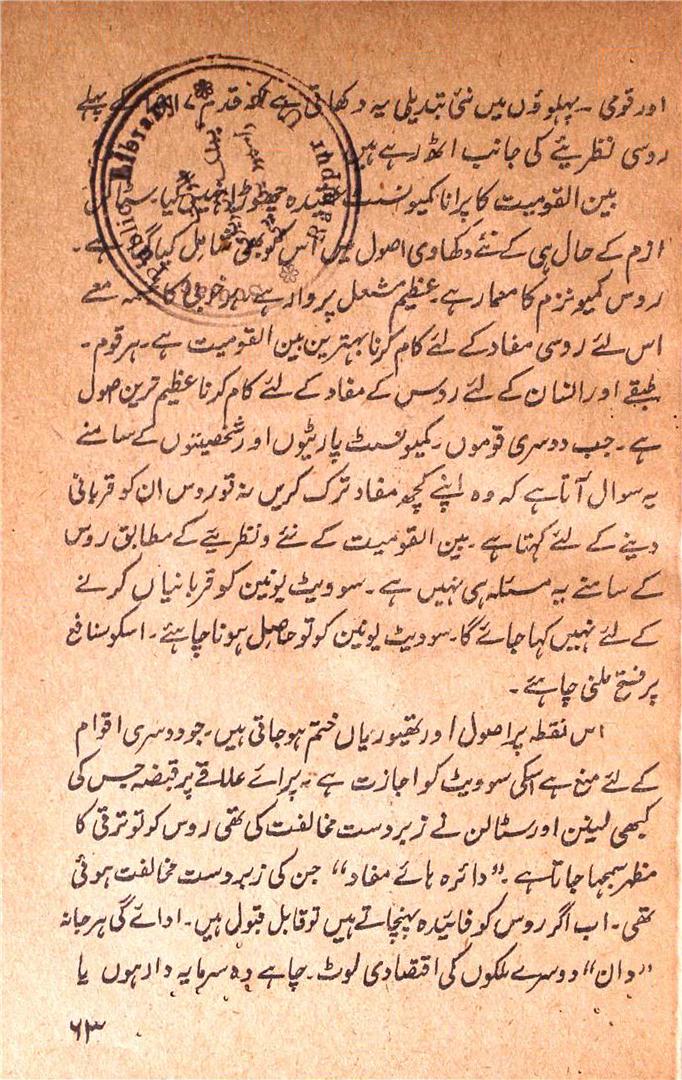 اور قومی - پہلوؤں میں نئی تبدیلی یہ دکھاتی ہے کہ قدم کے پہلے
روسی نظریئے کی جانب اٹھ رہے ہیں
بین القومیت کا پرانا کمیونسٹ عقیدہ چھوڑا نہیں گیا۔
ازم کے حال ہی کے نئے دکھاوی اصول میں اس کو بھی شامل کیا گیا ہے۔
روس کمیونزم کا معمار ہے۔ عظیم مشعل پروار ہے۔ ہر خوبی کا
اس لئے روسی مفاد کے لئے کام کرنا بہترین بین القومیت ہے۔ ہر قوم۔
طبقے اور انسان کے لئے روس کے مفاد کے لئے کام کرنا عظیم ترین اصول
ہے۔ جب دوسری قوموں۔ کمیونسٹ پارٹیوں اور شخصیتوں کے سامنے
یہ سوال آتا ہے کہ وہ اپنے کچھ مفاد ترک کریں نہ تو روس ان کو قربانی
دینے کے لئے کہتا ہے۔ بین القومیت کے نئے ونظریئے کے مطابق روس
کے سامنے یہ مسئلہ ہی نہیں ہے۔ سوویٹ یونین کو قربانیاں کرنے
کے لئے نہیں کہا جائے گا۔ سوویٹ یونین کو تو حاصل ہونا چاہئے۔ اسکو منافع
پر فتح ملنی چاہئے۔
اس نقطہ پر اصول اور تھیوریاں ختم ہو جاتی ہیں۔ جو دوسری اقوام
کے لئے منع ہے اسکی سوویٹ کو اجازت ہے۔ پرائے علاقے پر قبضہ جس کی
کبھی لینن اور سٹالن نے زبردست مخالفت کی تھی روس کو تو ترقی کا
مظہر سمجھا جاتا ہے۔ "دائرہ ہائے مفاد" جن کی زبردست مخالفت ہوئی
تھی۔ اب اگر روس کو فائیدہ پہنچاتے ہیں تو قابل قبول ہیں۔ ادائے گی ہرجانہ
"دان" دوسرے ملکوں کی اقتصادی لوٹ۔ چاہے وہ سرمایہ دار ہوں یا
۶۳
Public Library